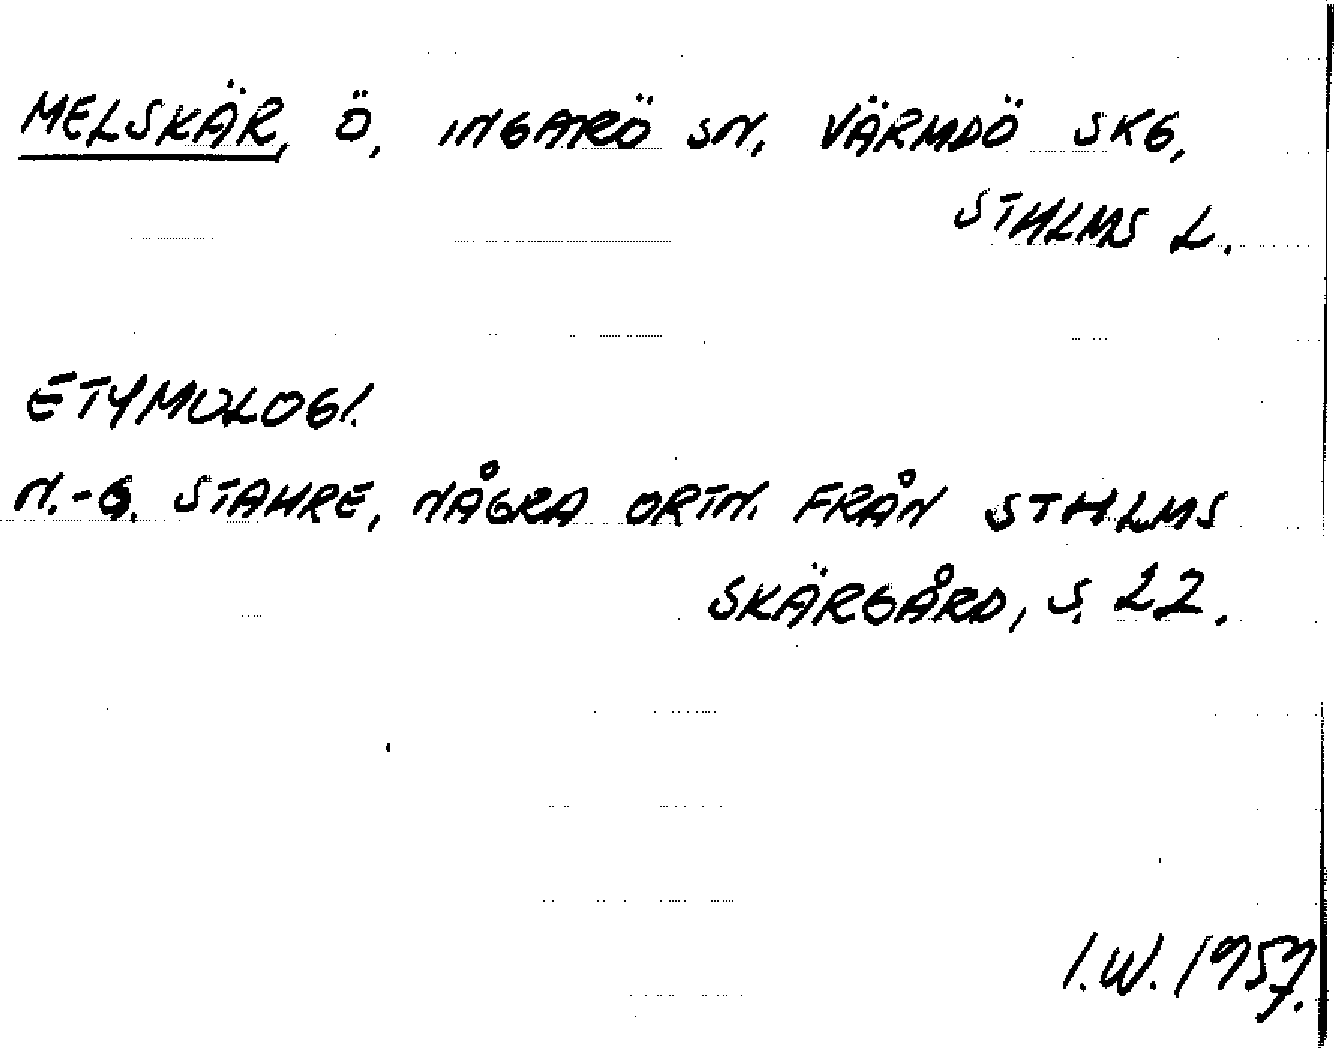 MELSKÄR, Ö, INGARÖ SN, VÄRMDÖ SKG,
STHLMS L.
ETYMOLOGI.
N.-G. STAHRE, NÅGRA ORTN. FRÅN STHLMS
SKÄRGÅRD, S. 22.
I.W. 1957.